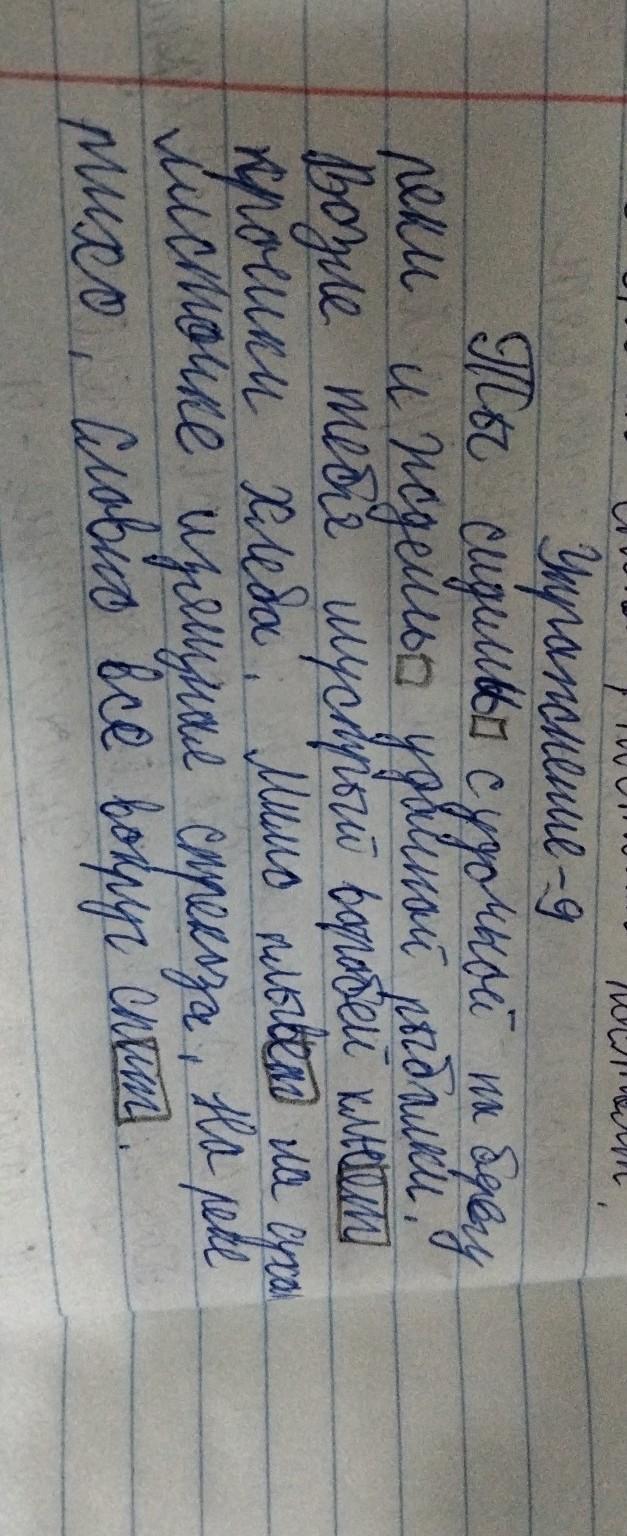 Упражнение-9
Ты сидишь с удочкой на берегу
реки и ждешь удачной рыбалки.
Возле тебя шустрый воробей клюет
крошки хлеба. Мимо плывет на сухом
листочке изящная стрекоза. На реке
тихо, словно все вокруг спит.